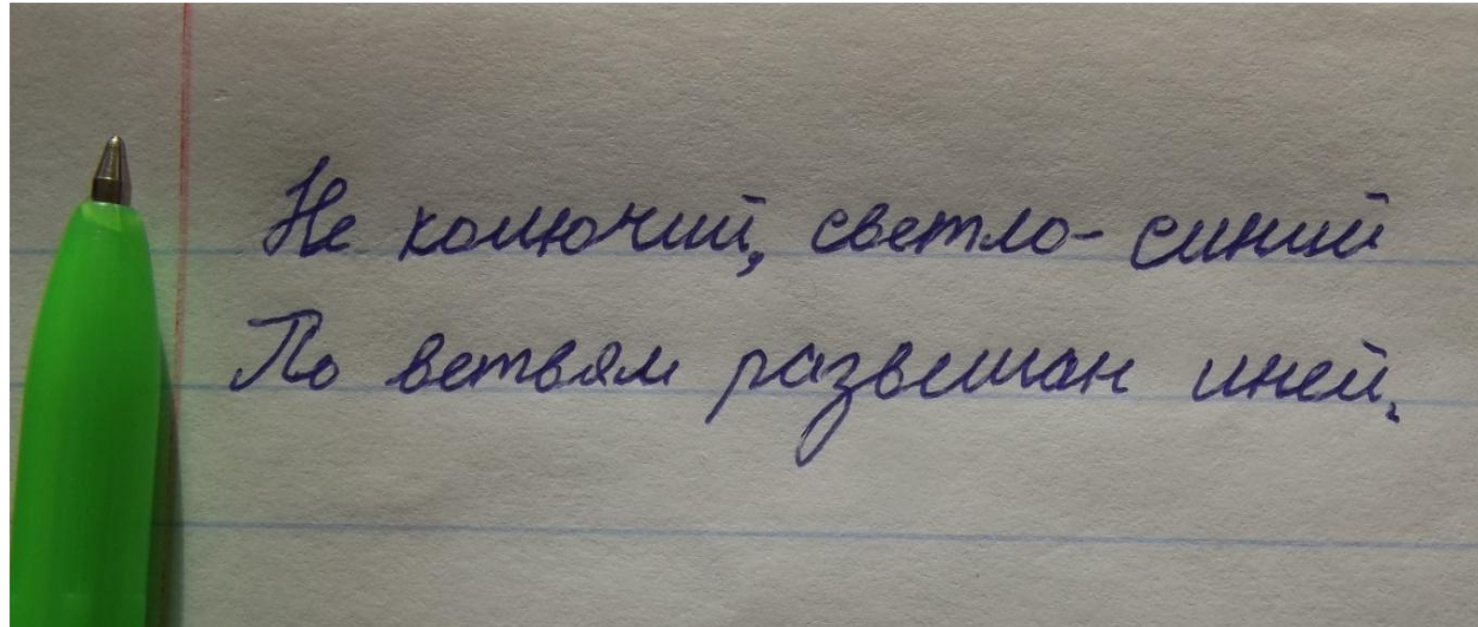 Не колючий, светло-синий
По ветвям развешан иней,